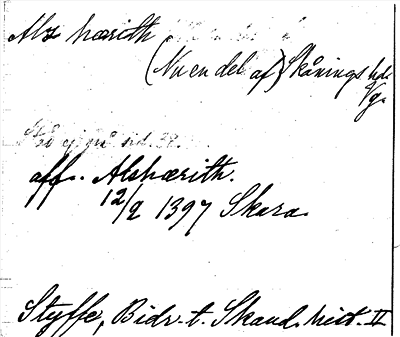 Als hærith
(Nu en del af) Skånings hd.
Vg.
aff. Alshærith.
12/2 1397 Skara.
Styffe, Bidr. t. Skand. hist. II